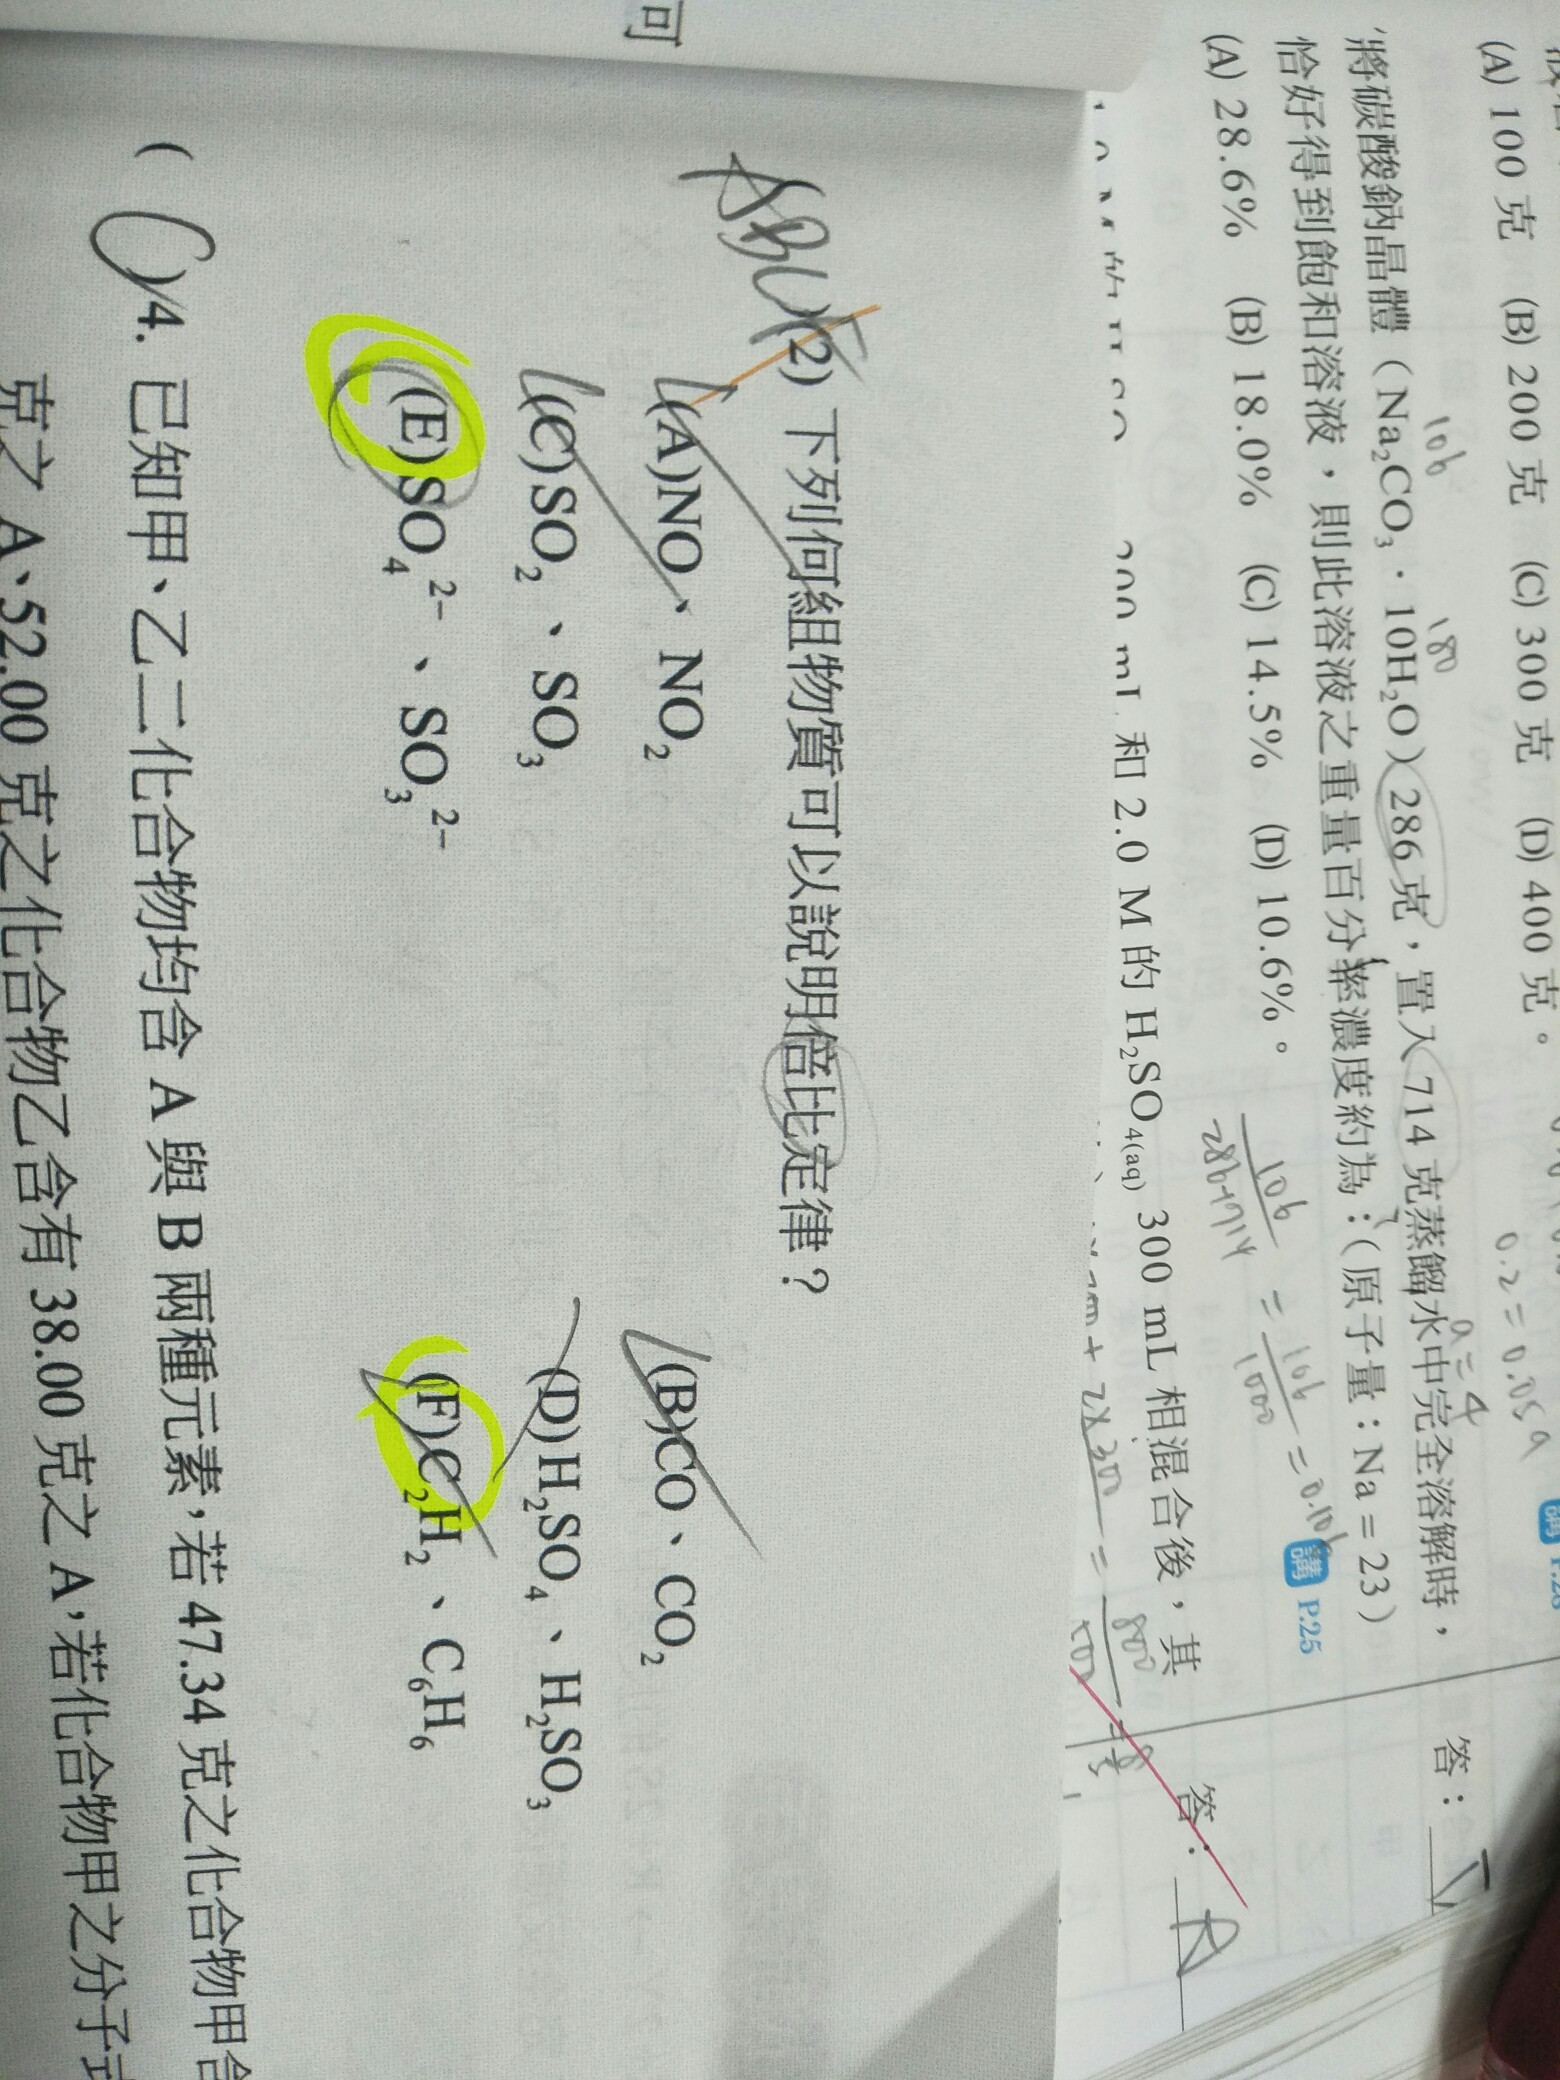 (A) 100 克 (B) 200 克 (C) 300 克 (D) 400 克。
0.2 = 0.05a
a = 4
答：
106 180
將碳酸鈉晶體（Na₂CO₃．10H₂O）286 克，置入 714 克蒸餾水中完全溶解時，
恰好得到飽和溶液，則此溶液之重量百分率濃度約為：（原子量：Na = 23）
(A) 28.6% (B) 18.0% (C) 14.5% (D) 10.6%。
講 P.25
106/286+714 = 106/1000 = 0.106
mL 和 2.0 M 的 H₂SO₄(aq) 300 mL 相混合後，其
答：
可
(2) 下列何組物質可以說明倍比定律？
(A)NO、NO₂ (B)CO、CO₂
(C)SO₂、SO₃ (D)H₂SO₄、H₂SO₃
(E)SO₄²⁻、SO₃²⁻ (F)C₂H₂、C₆H₆
( )4. 已知甲、乙二化合物均含 A 與 B 兩種元素，若 47.34 克之化合物甲含
克之 A、52.00 克之化合物乙含有 38.00 克之 A，若化合物甲之分子式